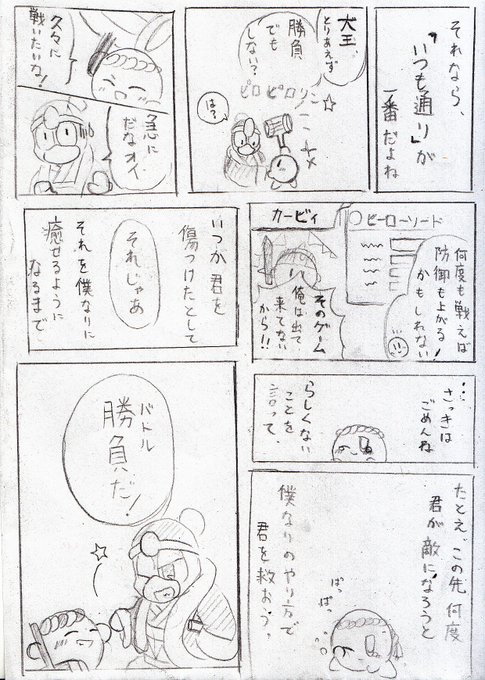 それなら、
「いつも通り」が
一番だよね
大王、
とりあえず
勝負
でも
しない？
ピロピロリン☆
は？
久々に
戦いたいな！
急に
だなオイ
何度も戦えば
防御も上がる！
かもしれない
ヒーローソード
カービィ
そのゲーム
俺は出て
来てない
から！！
いつか君を
傷つけたとして
それじゃあ
それを僕なりに
癒せるように
なるまで
…さっきは
ごめんね
らしくない
ことを
言って、
たとえ、この先何度
君が敵になろうと
ぱっ
ぱっ
僕なりのやり方で
君を救おう。
バトル
勝負だ！